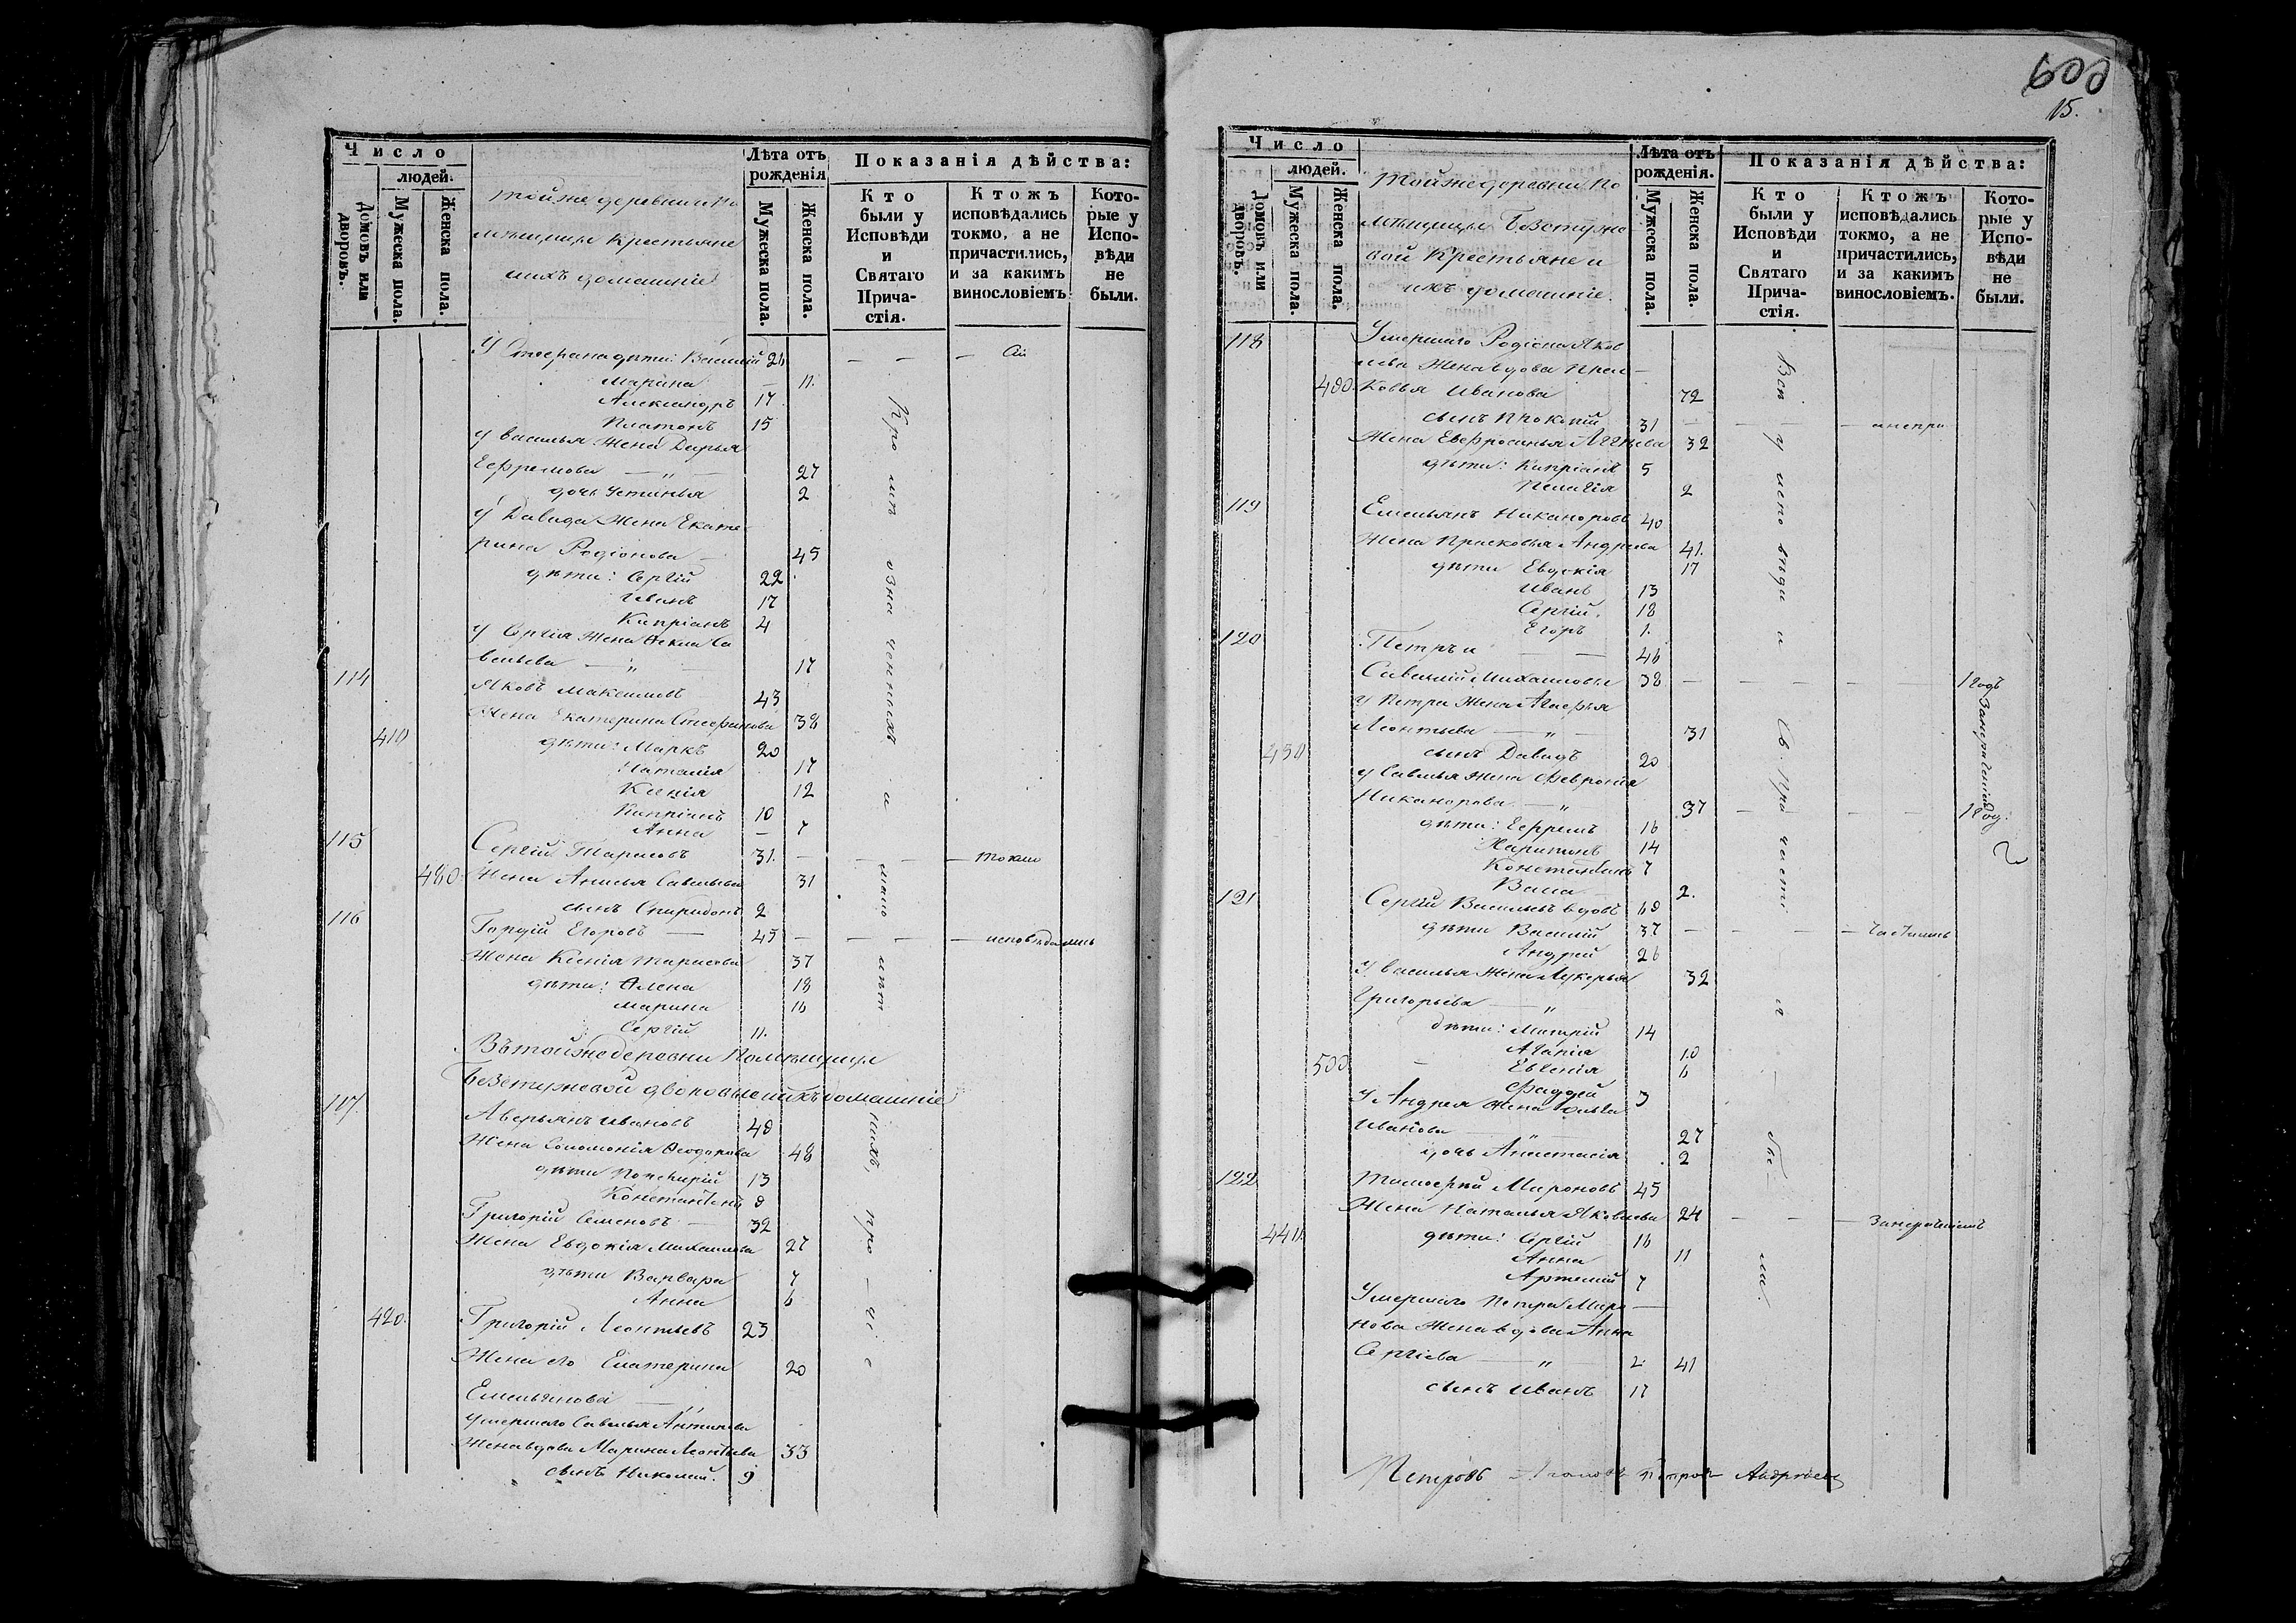 Число
людей.
Домовъ или дворовъ.
Мужеска пола.
Женска пола.
той же деревни По
мѣщицы Крестьяне
и ихъ домашніе
Лѣта отъ рожденія
Мужеска пола.
Женска пола.
Показанія дѣйства:
Кто были у Исповѣди и Святаго Прича-стія.
Ктожъ исповѣдались токмо, а не причастились, и за какимъ винословіемъ.
Кото-рые у Испо-вѣди не были.
У Стефана дѣти: Василій 26
Марина 11.
Александръ 17
Платонъ 15
У Василья жена Дарья
Ефремова — „ — 27
дочь Устинья 2
У Давида Жена Екате
рина Родіонова — 45
дѣти: Сергій 22
Иванъ 17
Кипріанъ 4
У Сергія Жена Ѳекла Са
вельева — „ — 17
114 Яковъ Максимовъ 43
Жена Екатерина Стефанова 38
410 дѣти: Маркъ 20
Наталія 17
Ксенія 12
Кипріанъ 10
Анна — 7
115 Сергій Тарасовъ 31. — — — токмо
480 Жена Анисья Савельева 31
сынъ Спиридонъ 2
116 Гордій Егоровъ — 45 — — — исповѣдались
Жена Ксенія Тарасова 37
дѣти: Алена 18
Марина 16
Сергій 11.
Въ той же деревни Помѣщицы
Безстужевой дворовые и ихъ домашніе
117. Аверьянъ Ивановъ 48
Жена Соломонія Ѳеодорова 48
дѣти Порфирій 13
Константинъ 8
Григорій Семеновъ — 32
Жена Евдокія Михайлова 27
дѣти Варвара 7
Анна 6
420. Григорій Леонтьевъ 23
Жена его Екатерина 20
Емельянова
умершаго Савелья Антипова
Жена вдова Марина Леонтьева 33
сынъ Николай. 9
600
15.
Число
людей.
Домовъ или дворовъ.
Мужеска пола.
Женска пола.
Той же деревни По
мѣщицы Безстуже
вой Крестьяне и
ихъ домашніе.
Лѣта отъ рожденія.
Мужеска пола.
Женска пола.
Показанія дѣйства:
Кто были у Исповѣди и Святаго Прича-стія.
Ктожъ исповѣдались токмо, а не причастились, и за какимъ винословіемъ.
Кото-рые у Испо-вѣди не были.
118 Умершаго Родіона Яков
лева Жена вдова Прас—
490. Ковья Иванова 72
сынъ Прокопій 31 — — — а не при
Жена Евфросинья Агѣева 32
дѣти: Кипріанъ 5
Пелагія 2
119 Емельянъ Никаноровъ 40
Жена Прасковья Андреева 41.
дѣти Евдокія 17
Иванъ 13
Сергій. 18
Егоръ 1.
120 Петръ и — — 46
Савелій Михайловы 38 — — — — 1 годъ
У Петра Жена Агафья
Леонтьева — „ — 31
430 сынъ Давидъ 20
у Савелья Жена Февронія
Никанорова — „ 37 — — — — 1 год:
дѣти: Ефремъ 16
Харитонъ 14
Константинъ 7
Васса — 2.
121 Сергій Васильевъ вдовъ 68
дѣти Василій 37 — — — частились
Андрей 26
У Василья Жена Лукерья 32
Григорьева — „
дѣти: Матвѣй 14
Агапія 10
500. — Евгенія 6
Фаддей 3
У Андрея Жена Ольга
Иванова — „ — 27
дочь Анастасія 2
122 Тимофей Мироновъ 45
Жена Наталья Яковлева 24 — — — За нераченіемъ
440. дѣти: Сергій 16
Анна 11
Артемій 7
Умершаго Петра Миро —
нова Жена вдова Анна
Сергіева — „ — 41
сынъ Иванъ 17
Петровъ Петровъ Андрѣевъ